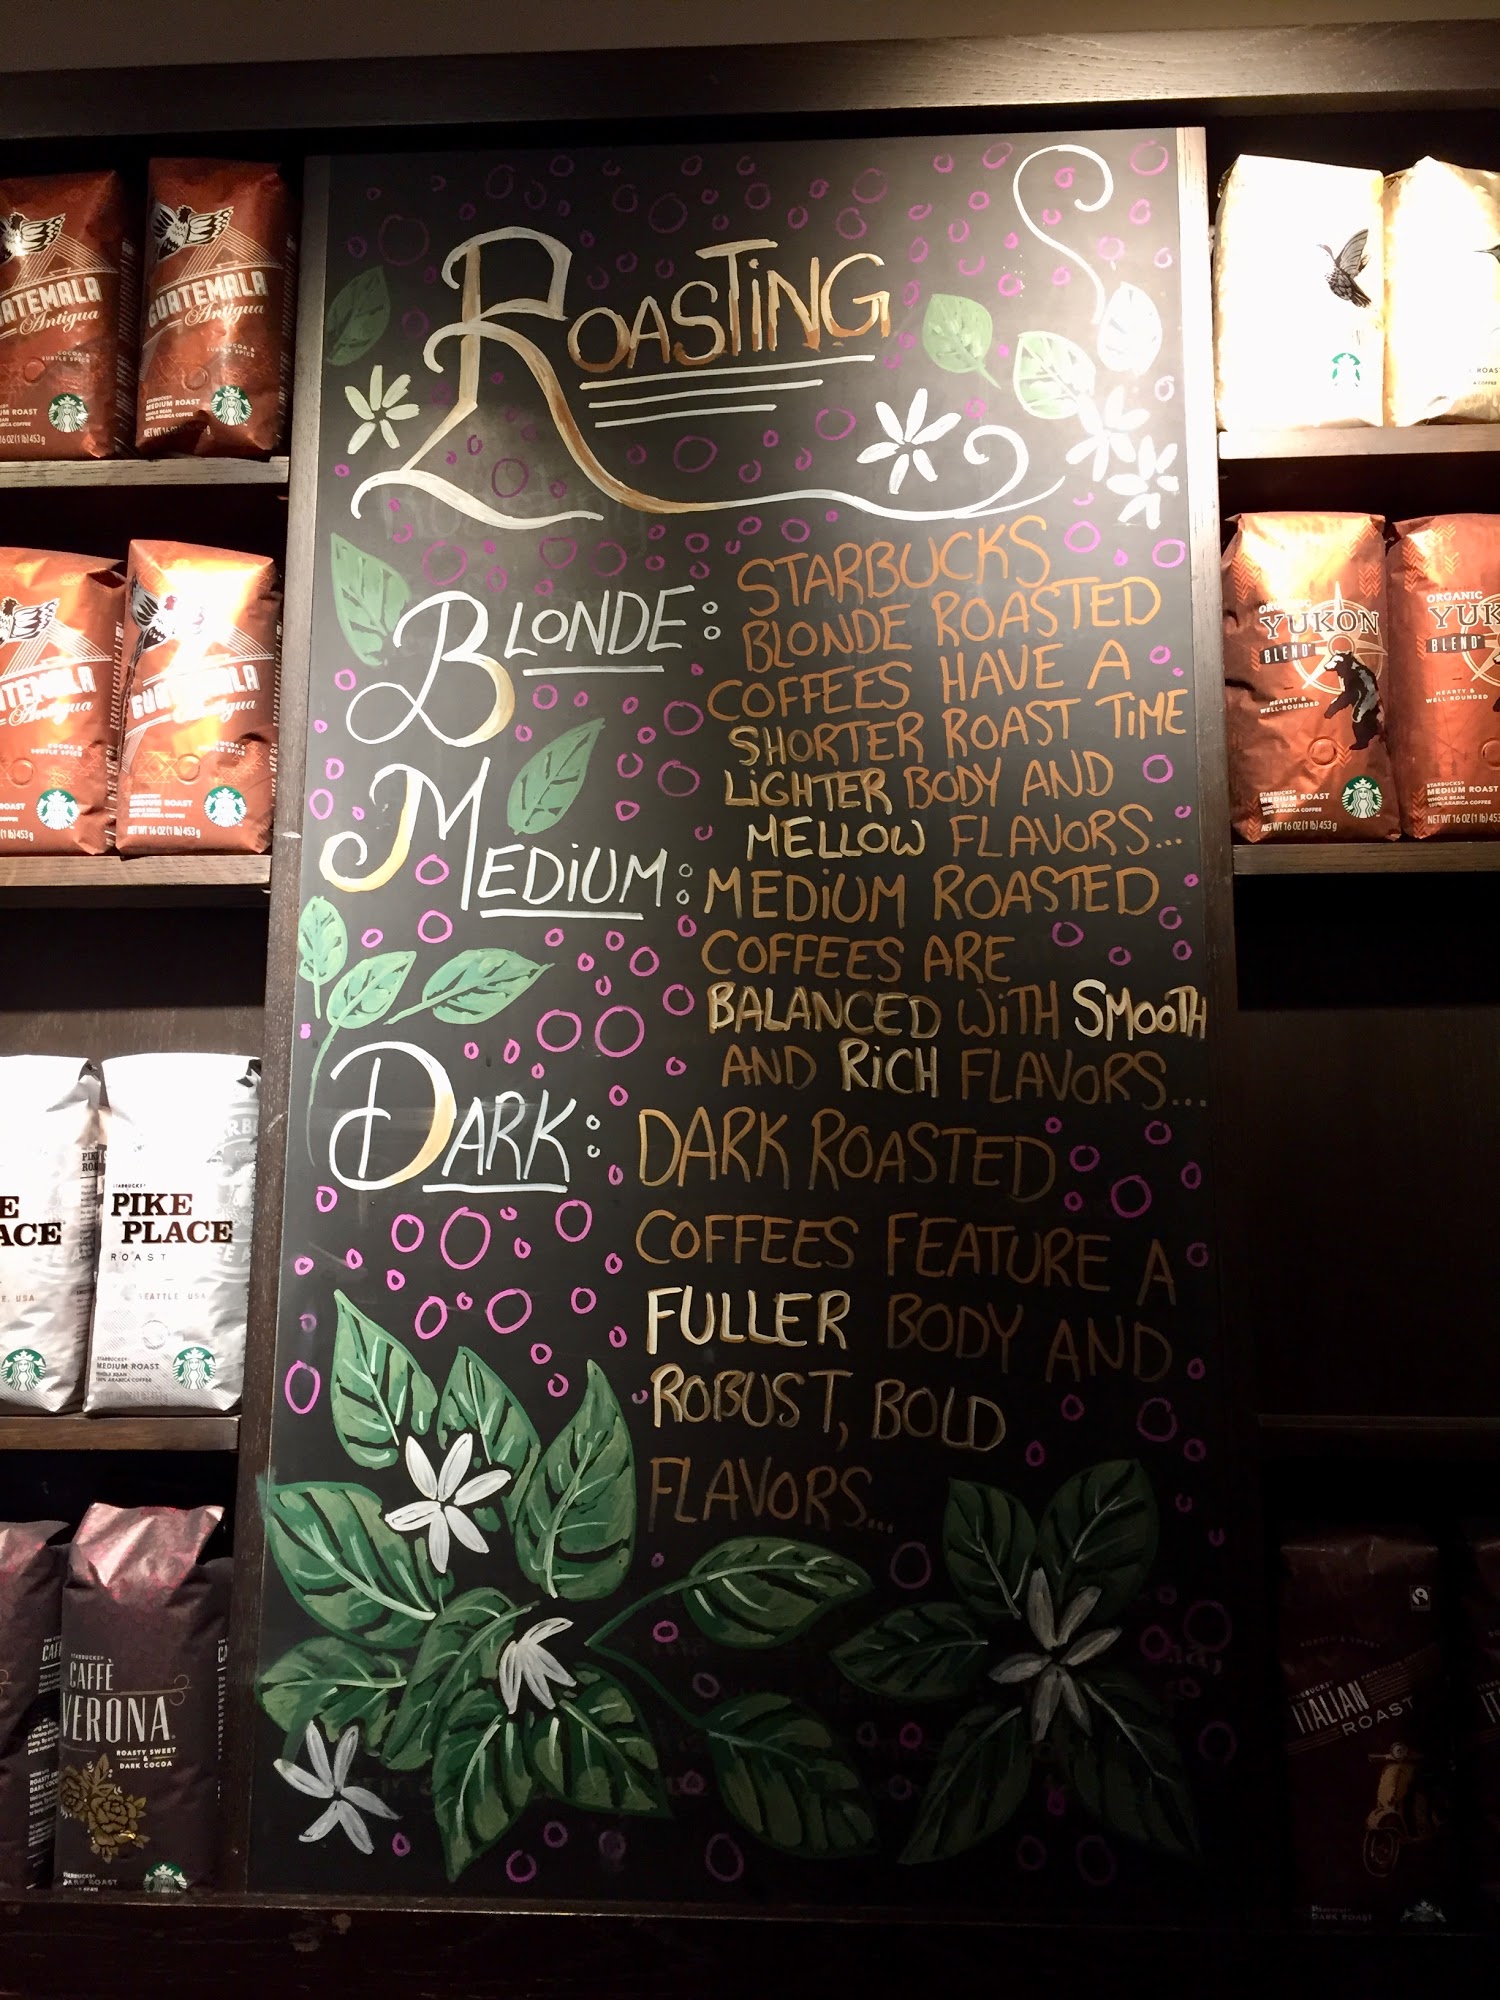 ROASTING
BLONDE:
STARBUCKS
BLONDE ROASTED
COFFEES HAVE A
SHORTER ROAST TIME
LIGHTER BODY AND
MELLOW FLAVORS...
MEDIUM:
MEDIUM ROASTED
COFFEES ARE
BALANCED WITH SMOOTH
AND RICH FLAVORS...
DARK:
DARK ROASTED
COFFEES FEATURE A
FULLER BODY AND
ROBUST, BOLD
FLAVORS...
GUATEMALA
Antigua
COCOA &
SUBTLE SPICE
MEDIUM ROAST
WHOLE BEAN
100% ARABICA COFFEE
NET WT 16 OZ (1 lb) 453 g
GUATEMALA
Antigua
COCOA &
SUBTLE SPICE
MEDIUM ROAST
NET WT 16 OZ (1 lb) 453 g
STARBUCKS
PIKE
PLACE
ROAST
SEATTLE, USA
STARBUCKS
MEDIUM ROAST
WHOLE BEAN
100% ARABICA COFFEE
STARBUCKS
CAFFÈ
VERONA
ROASTY SWEET
&
DARK COCOA
STARBUCKS
DARK ROAST
ORGANIC
YUKON
BLEND
HEARTY &
WELL-ROUNDED
STARBUCKS
MEDIUM ROAST
WHOLE BEAN
100% ARABICA COFFEE
NET WT 16 OZ (1 lb) 453 g
ORGANIC
YUKON
BLEND
HEARTY &
WELL-ROUNDED
STARBUCKS
MEDIUM ROAST
WHOLE BEAN
NET WT 16 OZ (1 lb)
ROASTY & SWEET
STARBUCKS
ITALIAN
ROAST
DARK ROAST